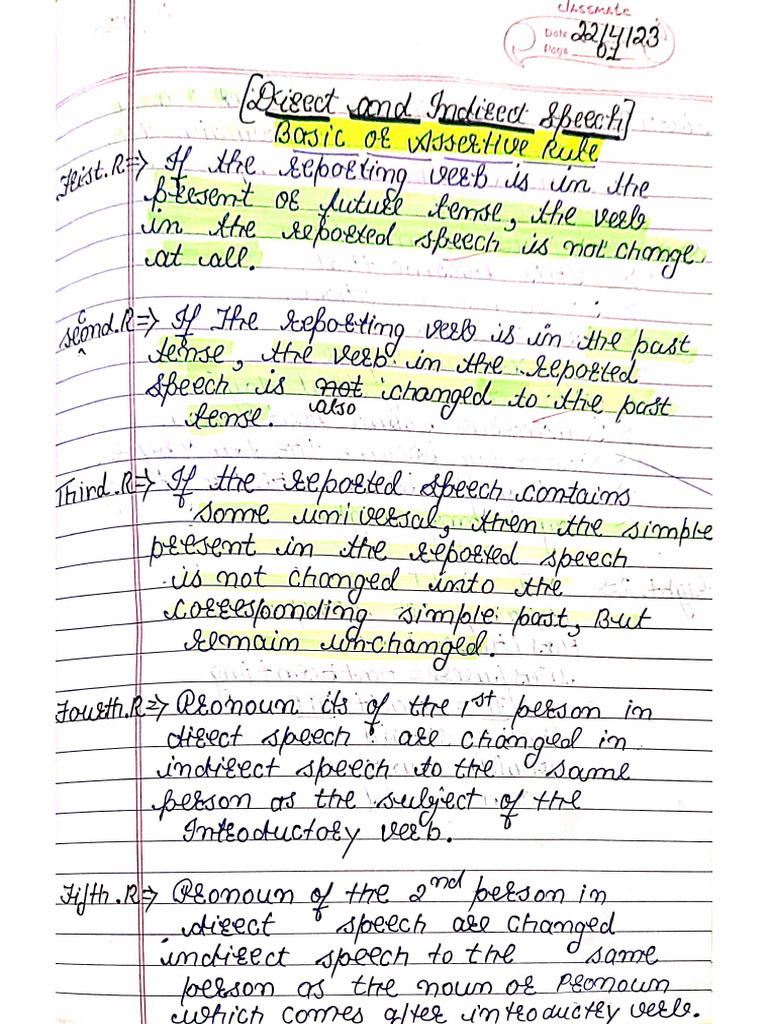 classmate
Date 22/4/23
Page 01
[Direct and Indirect Speech]
Basic or Assertive Rule
First.R⇒ If the reporting verb is in the
present or future tense, the verb
in the reported speech is not change
at all.
second.R⇒ If The reporting verb is in the past
tense, the verb in the reported
speech is not changed to the past
also
tense.
Third.R⇒ If the reported speech contains
some universal, then the simple
present in the reported speech
is not changed into the
corresponding simple past, But
remain unchanged.
Fourth.R⇒ Pronoun its of the 1st person in
direct speech are changed in
indirect speech to the same
person as the subject of the
Introductory verb.
Fifth.R⇒ Pronoun of the 2nd person in
direct speech are changed
indirect speech to the same
person as the noun or Pronoun
which comes after introductly verb.